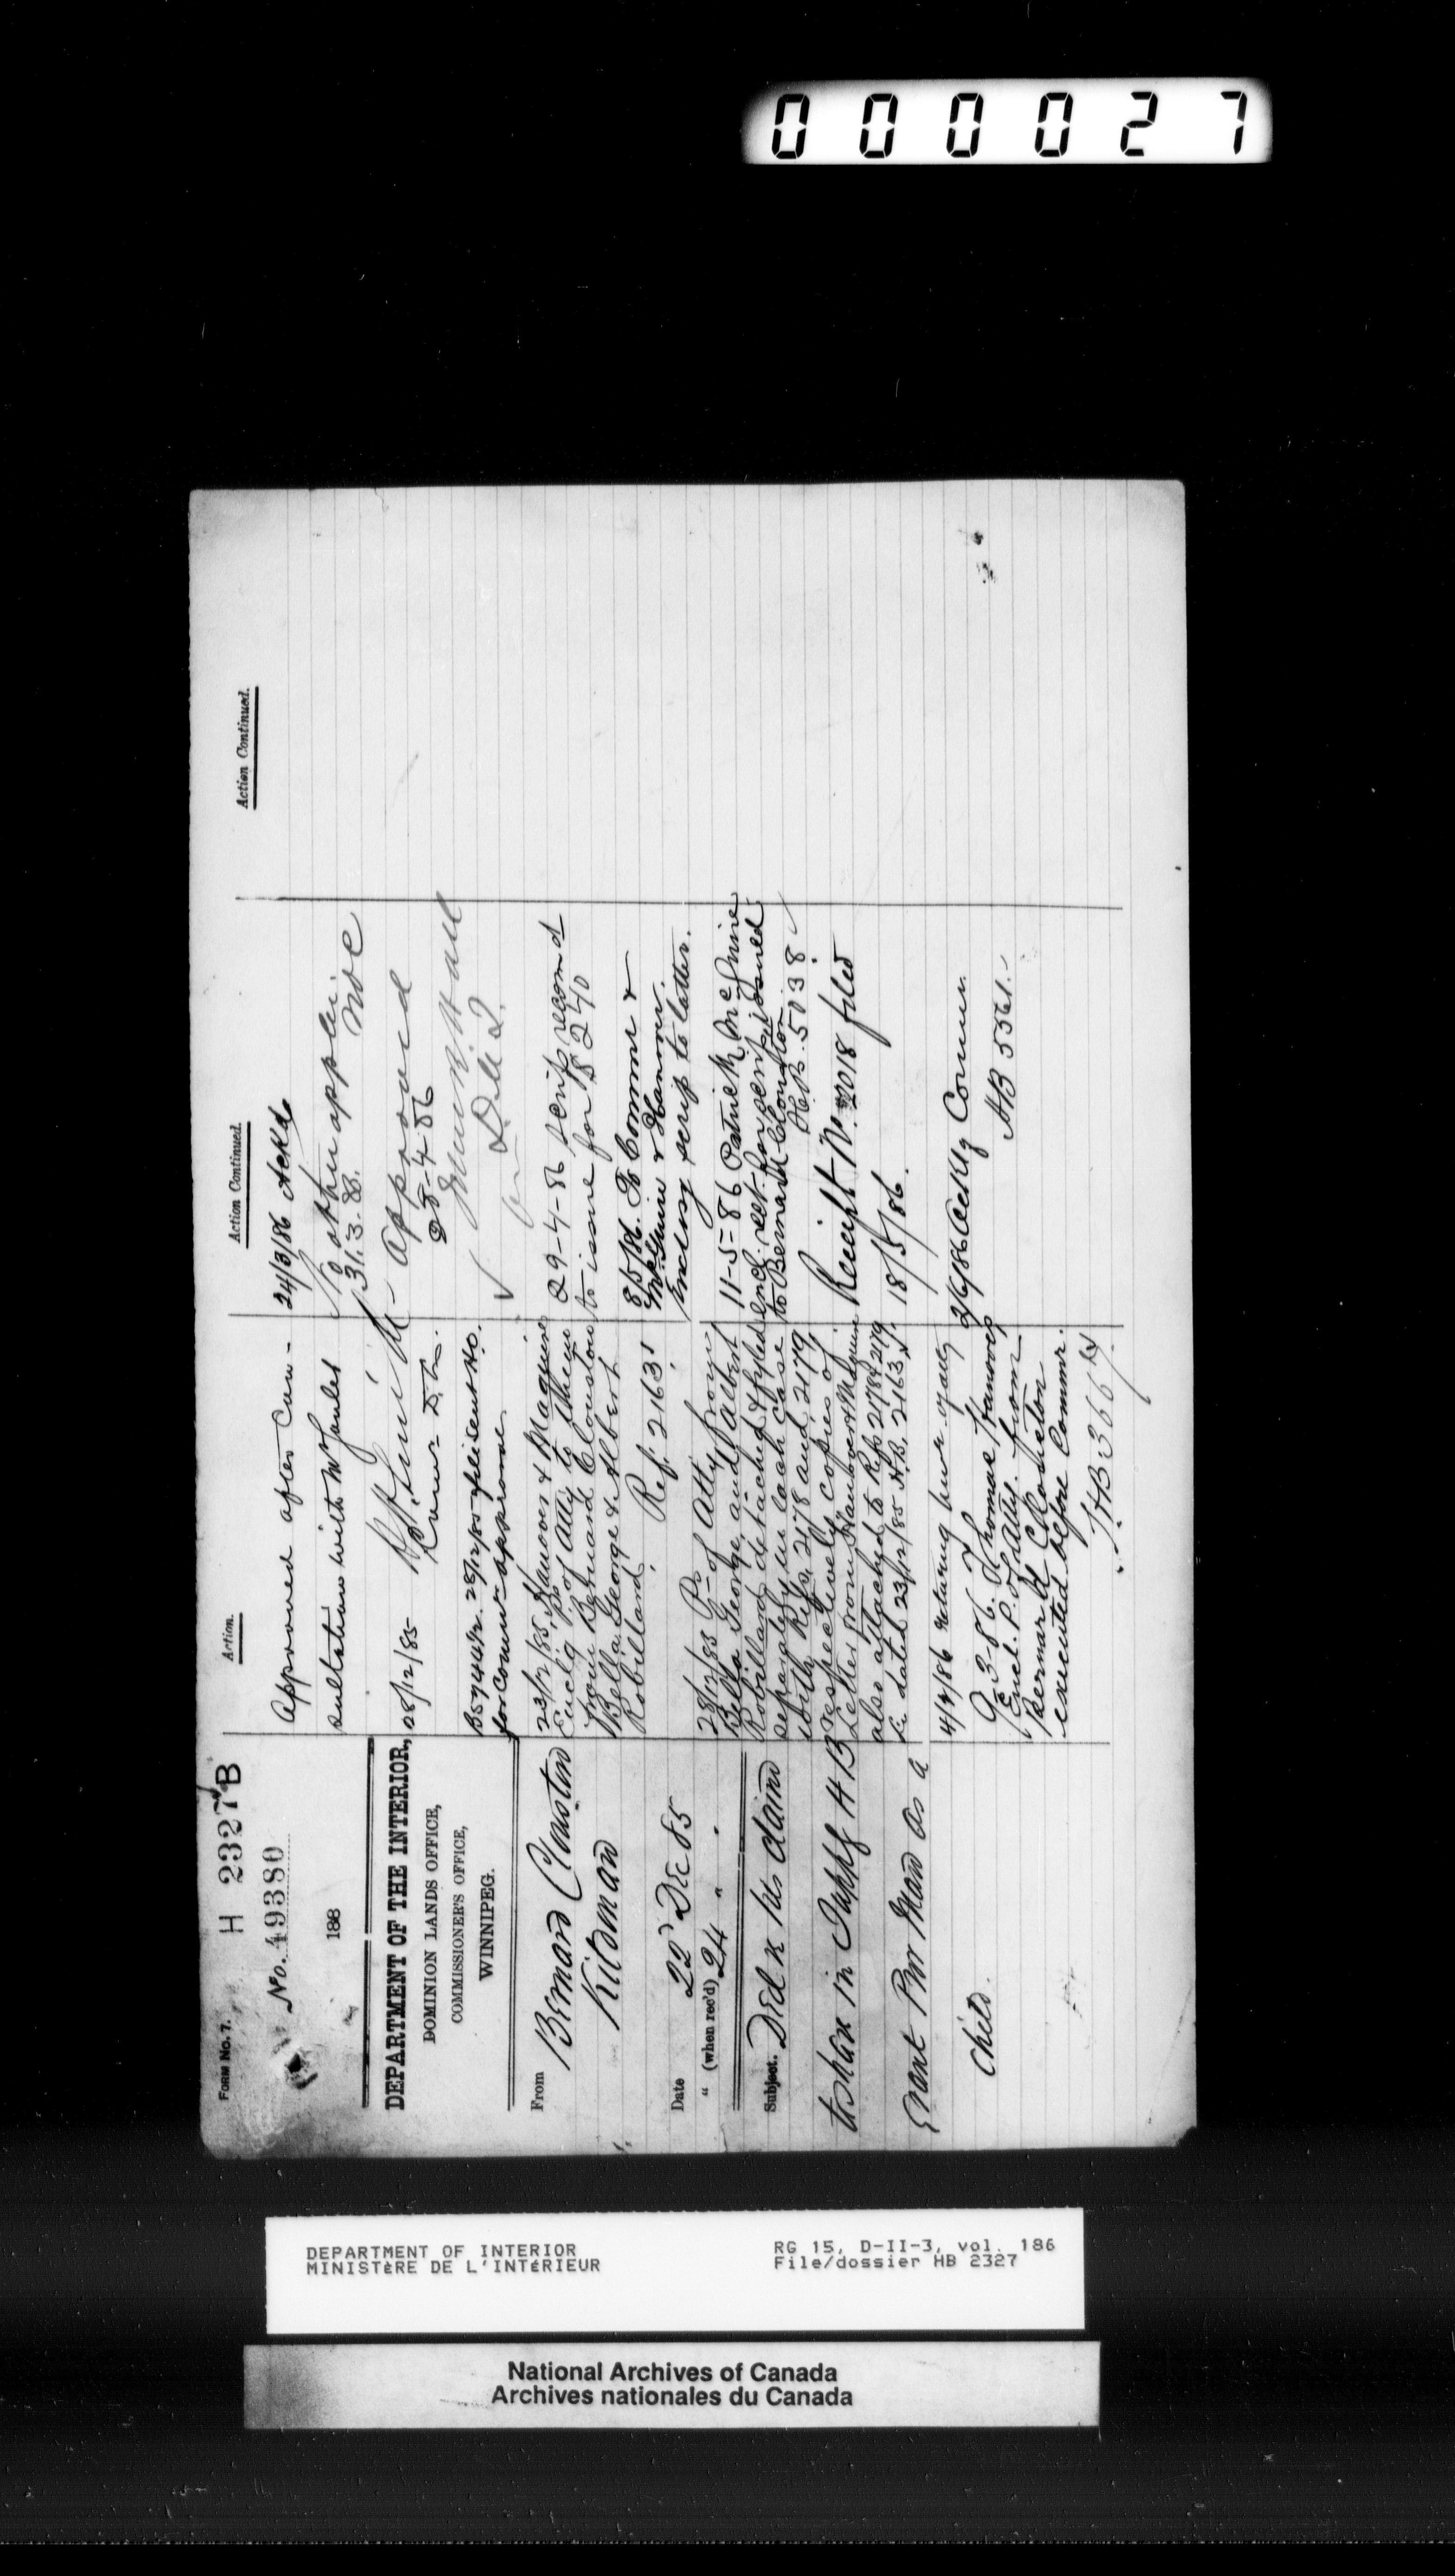 000027
FORM No. 7.
H 2327 B
No. 49380
188
DEPARTMENT OF THE INTERIOR,
DOMINION LANDS OFFICE,
COMMISSIONER'S OFFICE,
WINNIPEG.
From Bernard Clouston
Kildonan
Date 22d Dec 85
" (when rec'd) 24 " "
Subject. Decl re his claim
to share in Supply HB
Grant Prov Man as a
child.
Action.
Approved after Con-
sultation with
28/12/85
28/12/85 file sent H.O.
for Comm approval
23/12/85 Hanover & Maguire
Enclg Ps of Atty to them
from Bernard Clouston
Bella George & Albert
Robillard. Ref. 2163
28/12/85 Ps of Atty from
Bella George and Albert
Robillard detached & fyled
separately in each case
with Refs. 2178 and 2179
respectively copies of
Letter from Hanover & Maguire
also attached to Refs 2178 & 2179
dated 23/12/85 H.B. 2163
4/4/86 returng powr of atty
9-3-86. Thomas Hanover
Encl. P. of atty. from
Bernard Clouston
executed before Commr.
HB 3667
Action Continued.
24/3/86 Ackd
No other appln.
31.3.86.
Approved
25-4-86
29-4-86 scrip recomd
to issue for $240
8/5/86. To Commr &
McGuire & Hanover.
Enclosg scrip to latter.
11-5-86 Patrick McGuire
encl. rect. for scrip issued
to Bernard Clouston
H.B. 5038
Receipt No. 2018 filed
18/5/86.
2/6/86 Ackg Comm.
HB 5561.
Action Continued.
DEPARTMENT OF INTERIOR
MINISTÈRE DE L'INTÉRIEUR
RG 15, D-II-3, vol. 186
File/dossier HB 2327
National Archives of Canada
Archives nationales du Canada